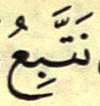 نَتَّبِعُ